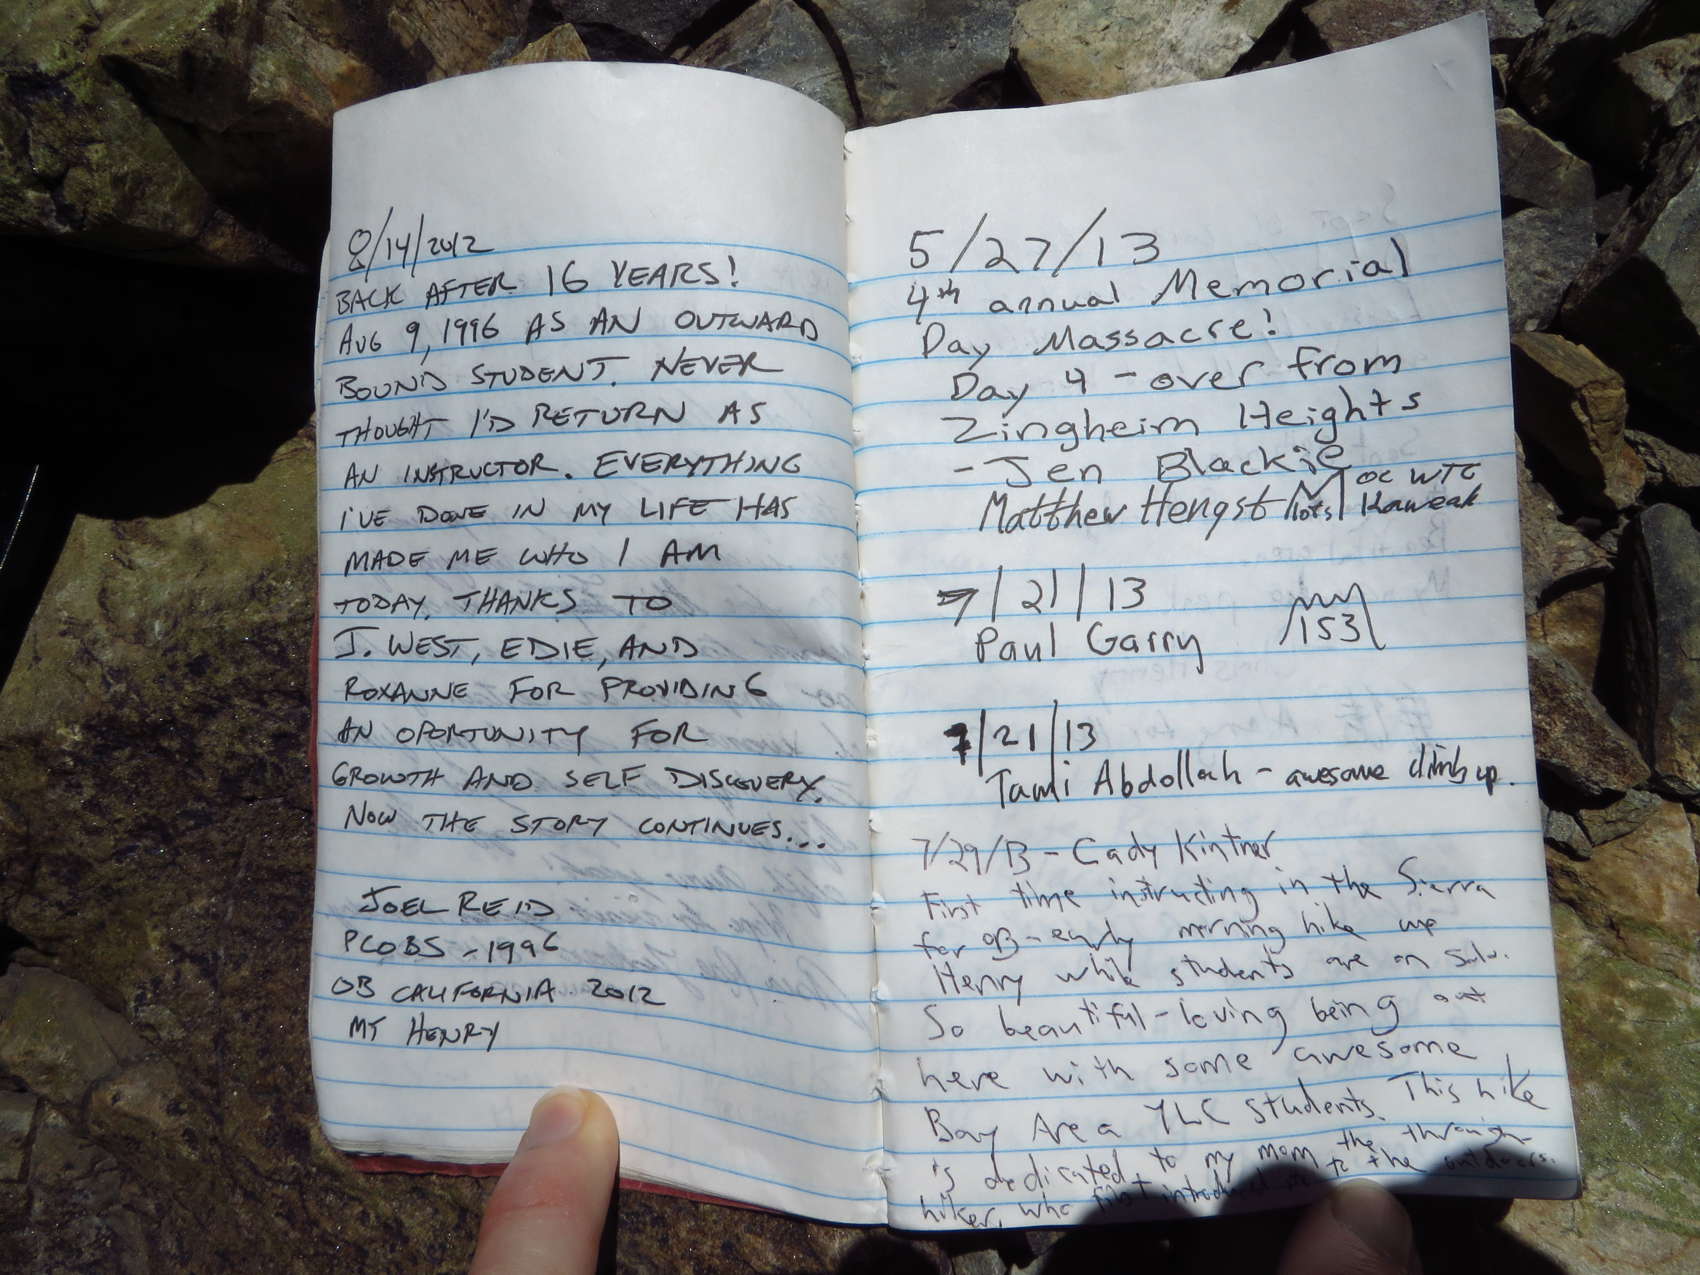 8/14/2012
BACK AFTER 16 YEARS!
AUG 9, 1996 AS AN OUTWARD
BOUND STUDENT. NEVER
THOUGHT I'D RETURN AS
AN INSTRUCTOR. EVERYTHING
I'VE DONE IN MY LIFE HAS
MADE ME WHO I AM
TODAY. THANKS TO
J. WEST, EDIE, AND
ROXANNE FOR PROVIDING
AN OPORTUNITY FOR
GROWTH AND SELF DISCOVERY.
NOW THE STORY CONTINUES...
JOEL REID
PCOBS - 1996
OB CALIFORNIA 2012
MT HENRY
5/27/13
4th annual Memorial
Day Massacre!
Day 4 - over from
Zingheim Heights
- Jen Blackie
Matthew Hengst
OC WTC
Kaweah
7/21/13
Paul Garry
153
7/21/13
Tami Abdollah - awesome climb up.
7/29/13 - Cady Kintner
First time instructing in the Sierra
for OB - early morning hike up
Henry while students are on solo.
So beautiful - loving being out
here with some awesome
Bay Area YLC students. This hike
is dedicated to my mom the through-
hiker, who first introduced me to the outdoors.